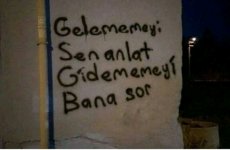 Gelememeyi
Sen anlat
Gidememeyi
Bana sor